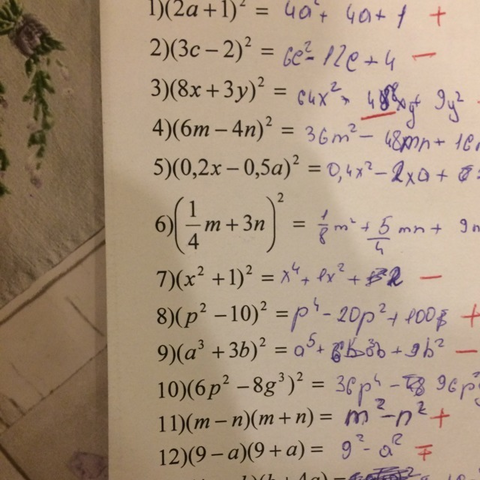 1)(2a + 1)² = 4a² + 4a + 1 +
2)(3c − 2)² = 6c² − 12c + 4 −
3)(8x + 3y)² = 64x² + 48xy + 9y²
4)(6m − 4n)² = 36m² − 48mn + 16n
5)(0,2x − 0,5a)² = 0,4x² − 2xa +
6)(1/4 m + 3n)² = 1/8 m² + 5/4 mn + 9n
7)(x² + 1)² = x⁴ + 2x² + 2 −
8)(p² − 10)² = p⁴ − 20p² + 100 +
9)(a³ + 3b)² = a⁵ + + 9b² −
10)(6p² − 8g³)² = 36p⁴ − 96p²
11)(m − n)(m + n) = m² − n² +
12)(9 − a)(9 + a) = 9² − a² ∓